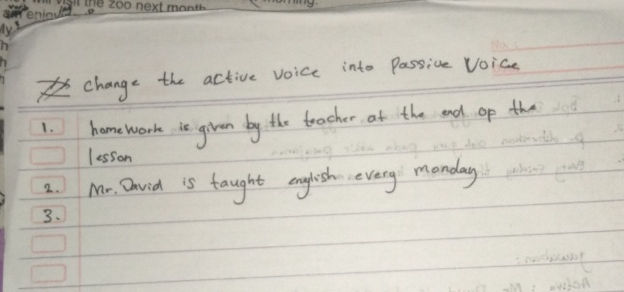 the zoo next month
# change the active voice into passive Voice
1. home work is given by the teacher at the end of the
lesson
2. Mr. David is taught english every monday
3.